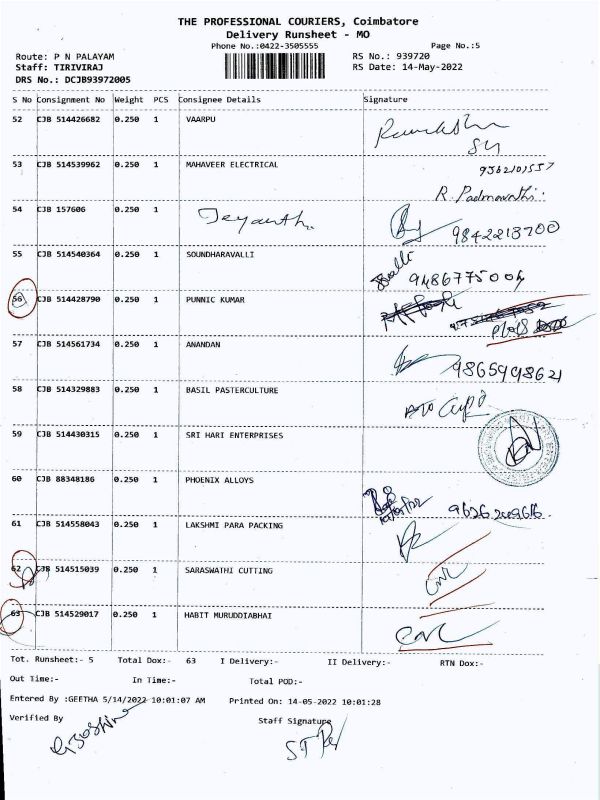 THE PROFESSIONAL COURIERS, Coimbatore
Delivery Runsheet - MO
Phone No.:0422-3505555 Page No.:5
Route: P N PALAYAM RS No.: 939720
Staff: TIRIVIRAJ RS Date: 14-May-2022
DRS No.: DCJB93972005
S No Consignment No Weight PCS Consignee Details Signature
52 CJB 514426682 0.250 1 VAARPU
53 CJB 514539962 0.250 1 MAHAVEER ELECTRICAL
R. Padmavathi
54 CJB 157606 0.250 1 Jeyantha 9842213700
55 CJB 514540364 0.250 1 SOUNDHARAVALLI
9486775004
56 CJB 514428790 0.250 1 PUNNIC KUMAR
57 CJB 514561734 0.250 1 ANANDAN
9865998621
58 CJB 514329883 0.250 1 BASIL PASTERCULTURE
59 CJB 514430315 0.250 1 SRI HARI ENTERPRISES
60 CJB 88348186 0.250 1 PHOENIX ALLOYS
61 CJB 514558043 0.250 1 LAKSHMI PARA PACKING
62 CJB 514515039 0.250 1 SARASWATHI CUTTING
63 CJB 514529017 0.250 1 HABIT MURUDDIABHAI
Tot. Runsheet:- 5 Total Dox:- 63 I Delivery:- II Delivery:- RTN Dox:-
Out Time:- In Time:- Total POD:-
Entered By :GEETHA 5/14/2022 10:01:07 AM Printed On: 14-05-2022 10:01:28
Verified By Staff Signature